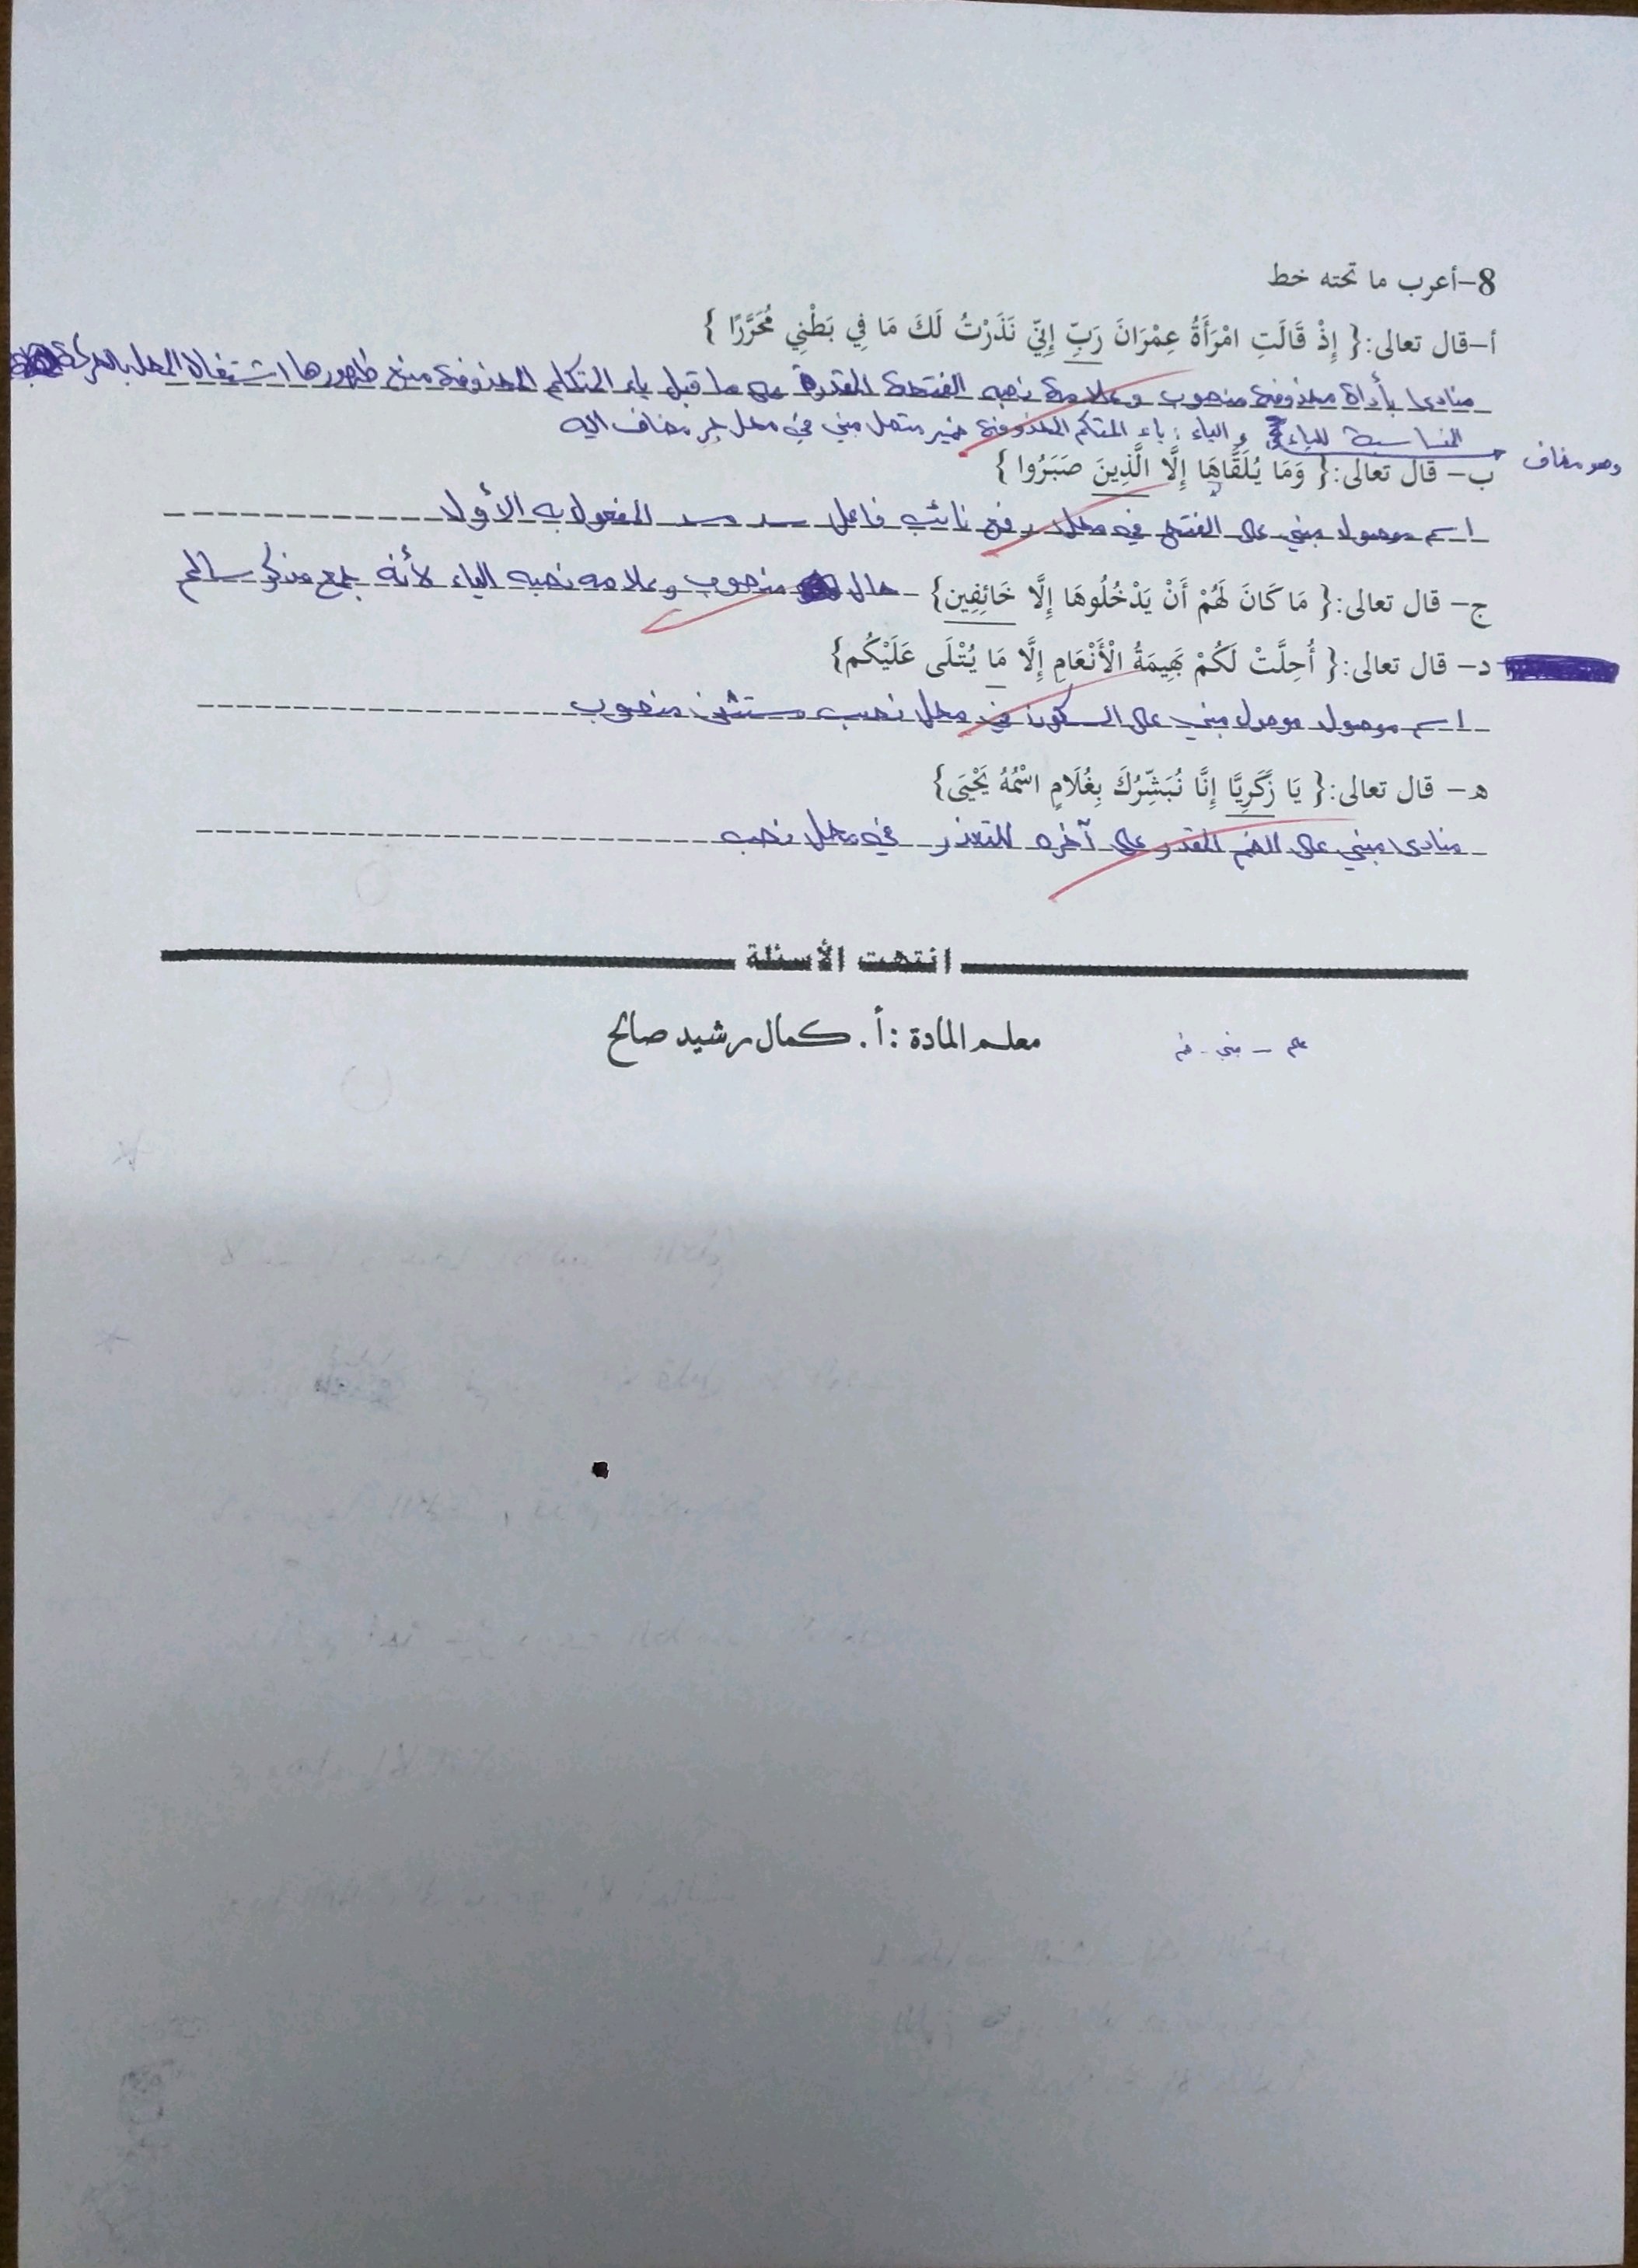 8-أعرب ما تحته خط
أ-قال تعالى:{ إِذْ قَالَتِ امْرَأَةُ عِمْرَانَ رَبِّ إِنِّي نَذَرْتُ لَكَ مَا فِي بَطْنِي مُحَرَّرًا }
منادى بأداة محذوفة منصوب وعلامة نصبه الفتحة المقدرة على ما قبل ياء المتكلم المحذوفة منع ظهورها اشتغال المحل بالحركة
المناسبة للياء و الياء : ياء المتكلم المحذوفة ضمير متصل مبني في محل جر مضاف اليه
وهو مضاف
ب- قال تعالى:{ وَمَا يُلَقَّاهَا إِلَّا الَّذِينَ صَبَرُوا }
اسم موصول مبني على الفتح في محل رفع نائب فاعل سد مسد المفعول به الأول
ج- قال تعالى:{ مَا كَانَ لَهُمْ أَنْ يَدْخُلُوهَا إِلَّا خَائِفِين} حال منصوب وعلامه نصبه الياء لأنه جمع مذكر سالم
د- قال تعالى:{ أُحِلَّتْ لَكُمْ بَهِيمَةُ الْأَنْعَامِ إِلَّا مَا يُتْلَى عَلَيْكُم}
اسم موصول موصول مبني على السكون في محل نصب مستثنى منصوب
ه- قال تعالى:{ يَا زَكَرِيَّا إِنَّا نُبَشِّرُكَ بِغُلَامٍ اسْمُهُ يَحْيَى}
منادى مبني على الضم المقدر على آخره للتعذر في محل نصب
انتهت الأسئلة
معلم المادة : أ. كمال رشيد صالح